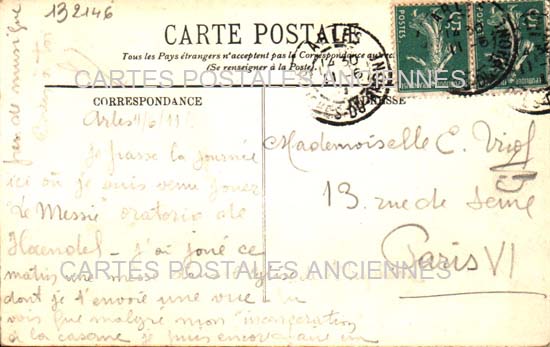 132146
CARTE POSTALE
Tous les Pays étrangers n'acceptent pas la Correspondance au
(Se renseigner à la Poste)
CARTES POSTALES ANCIENNES
CORRESPONDANCE
ADRESSE
Arles 4/6/11
Je passe la journée
ici où je suis venu jouer
"Le Messie" oratorio de
Haendel - J'ai joué ce
matin une messe
dont je t'envoie une vue Tu
vois que malgré mon "incorporation"
à la caserne je puis encore
peu de musique
Mademoiselle C.
13 rue de Seine
Paris VI
CARTES POSTALES ANCIENNES
POSTES
ARLES